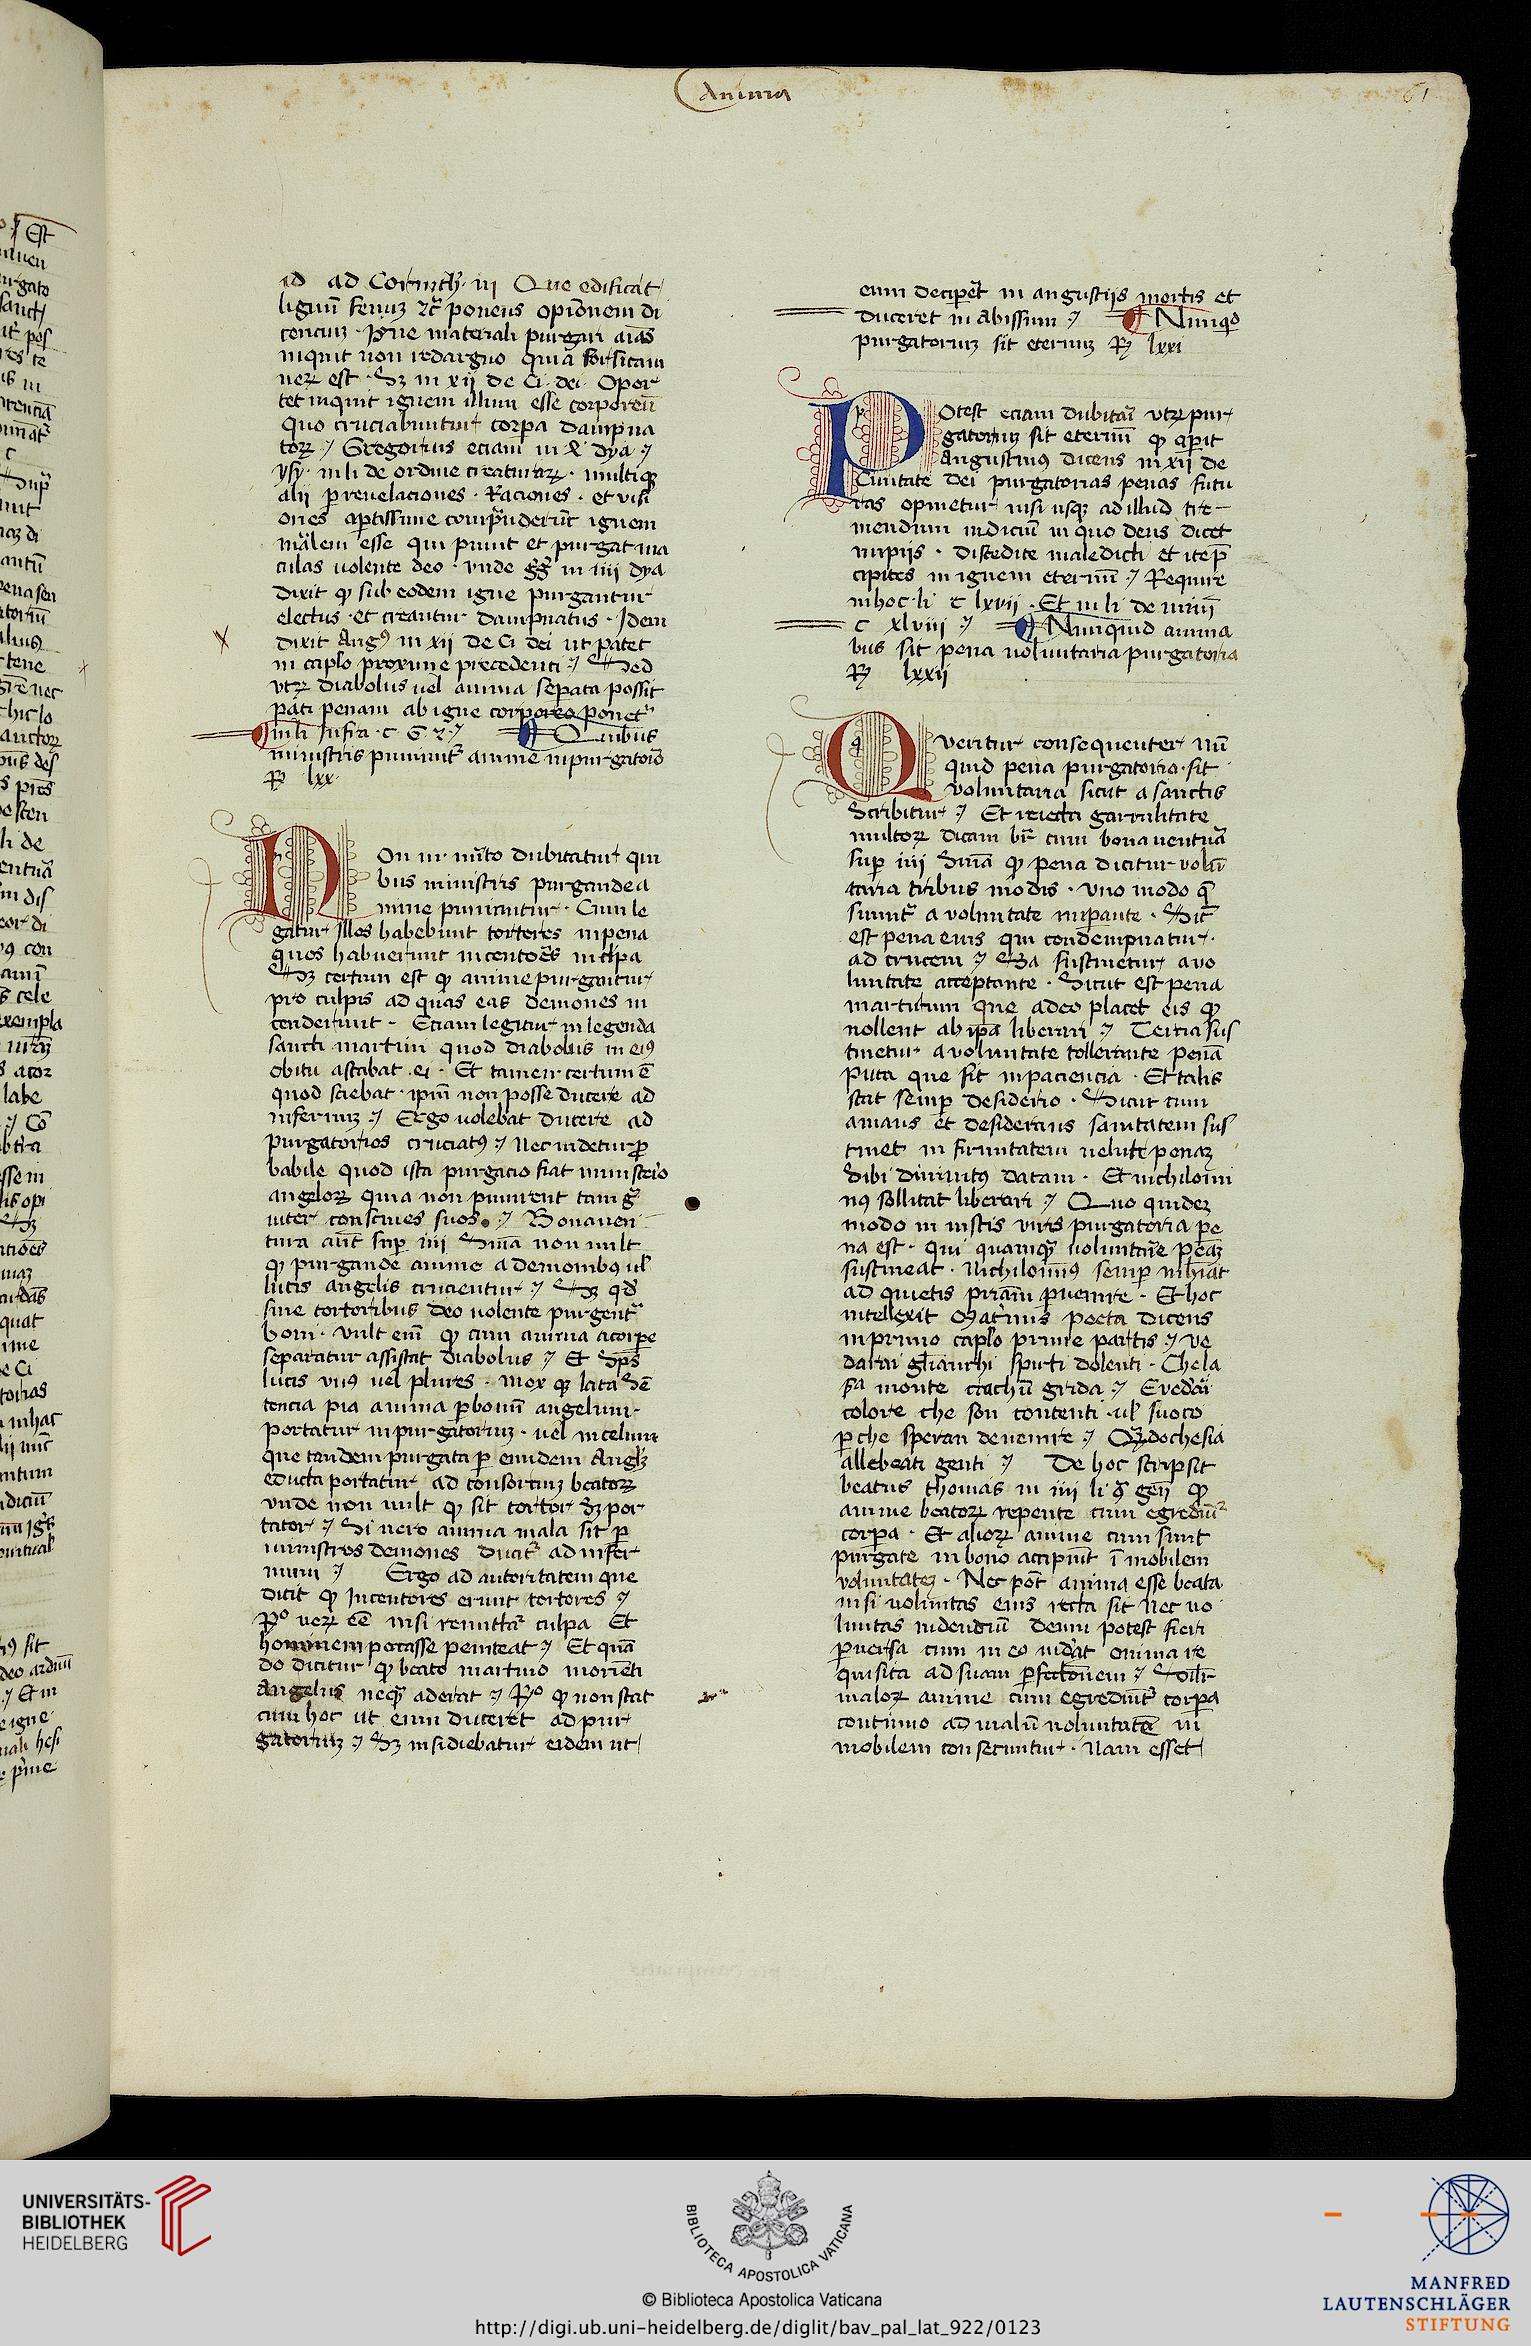 Anima
61
id ad Corinth̄. iii Que edificat
lignū fenuꝫ ⁊c̄ ponens opīonem di
centiuꝫ · Igne materiali purgari aīas
inquit non redarguo quia forsitam
ueꝝ est · Sꝫ in xii de Ci. dei. Opor
tet inquit ignem illum esse corporeū
quo cruciabuntur corpa dampna
toꝝ ⁊ Gregorius eciam in dya ⁊
ysy. in li de ordine creaturaꝝ. multiqꝫ
alii p reuelaciones. Raciones. et visi
ones aptissime comprehenderūt ignem
mālem esse qui punit et purgat ma
culas uolente deo. vnde gḡ in iiii dya
dixit ꝙ sub eodem igne purgantur
electus et creantur dampnatus. Idem
dixit Augꝰ in xii de Ci dei ut patet
in caplo proxime precedenti ⁊ Sed
vtꝝ diabolus uel anima sepata possit
pati penam ab igne corporeo ponet᷑
in li infra. c 62 ⁊ Quibus
ministris puniunt᷑ anime in purgatorio
R lxx
Non in mīto dubitatur qui
bus ministris purgande a
nime puniantur. Cum le
gatur Illos habebunt tortores in pena
quos habuerunt incentores in clpa
Sꝫ certum est ꝙ anime purgantur
pro culpis ad quas eas demones in
cenderunt. Eciam legitur in legenda
sancti martini quod diabolus in eiꝰ
obitu astabat ei. Et tamen certum ē
quod sciebat ipm̄ non posse ducere ad
infernuꝫ ⁊ Ergo uolebat ducere ad
purgatorios cruciatꝰ ⁊ Nec uidetur ꝓ
babile quod ista purgacio fiat ministerio
angeloꝝ quia non punirent tam gͣ
uiter conciues suos. ⁊ Bonauen
tura aūt sup iiii Sniā non uult
ꝙ purgande anime a demonibꝰ ul̄
lucis angelis crucientur ⁊ Sꝫ qd̓
sine tortoribus deo uolente purgent᷑
boni. vult em̄ ꝙ cum anima a corpe
separatur assistat diabolus ⁊ Et sp̄s
lucis vnꝰ uel plures. mox qꝫ lata sē
tencia pia anima p bonū angelum
portatur in purgatoriuꝫ. uel in celum
que tandem purgata p eundem Anglꝫ
educta portatur ad consorciuꝫ beatoꝝ
vnde non uult ꝙ sit tortor sꝫ por
tator ⁊ Si uero anima mala sit p
ministros demones ducit᷑ ad infer
num ⁊ Ergo ad autoritatem que
dicit ꝙ Incentores erunt tortores ⁊
Rº ueꝝ eē nisi remittat᷑ culpa Et
hominem pecasse peniteat ⁊ Et quā
do dicitur ꝙ beato martino morienti
Angelus neqꝫ aderat ⁊ Rº ꝙ non stat
cum hoc ut eum duceret ad pur
gatoriuꝫ ⁊ Sꝫ insidiebatur eidem ut
eum deciperet in angustijs mortis et
duceret in abissum ⁊ Nunqd̓
purgatoriuꝫ sit eternuꝫ R lxxi
Potest eciam dubitari vtꝝ pur
gatoriuꝫ sit eternū ꝙ apit
Augustinꝰ dicens in xii de
Ciuitate dei purgatorias penas futu
ras opinetur nisi usqꝫ ad illud tre
mendum iudiciū in quo deus dicet
impijs. discedite maledicti et itep
cipites in ignem eternū ⁊ Require
in hoc li c lxvii. Et in li de
c xlviii ⁊ Nunquid anima
bus sit pena uoluntaria purgatoria
R lxxii
Queritur consequenter nū
quid pena purgatoria sit
voluntaria sicut a sanctis
Scribitur ⁊ Et reiecta garrulitate
multoꝝ dicam br̄ cum bonauentura
sup iiii Sniā ꝙ pena dicitur volū
taria tribus modis. vno modo q̄
sumit᷑ a voluntate inpante. Sic
est pena eius qui condempnatur.
ad crucem ⁊ Sa sustinetur a uo
luntate acceptante. Sicut est pena
martirum que adeo placet eis ꝙ
nollent ab ipā liberari ⁊ Tercia sus
tinetur a voluntate tollerante penā
puta que fit in paciencia. Et talis
stat semp desiderio. Sicut cum
amans et desiderans sanitatem sus
tinet in firmitatem uelut penaꝫ
sibi diuinitꝰ datam. Et nichilomi
nꝰ sollitat liberari ⁊ Quo quidez
modo in iustis viris purgatoria pe
na est. qui quamqꝫ voluntarie penaꝫ
sustineat. Nichilominꝰ semp inhiāt
ad quietis priam peruenire. Et hoc
intellexit poeta dicens
in primo caplo prime partis ⁊ ve
darai gliantichi spirti dolenti. Che la
monte ciachū grida ⁊ E vederai
colore che son contenti nel fuoco
p che speran de uenire ⁊ Quādochesia
alle beati genti ⁊ De hoc scripsit
beatus thomas in iiii li gen̄ ꝙ
anime beatoꝝ repente cum egrediūt᷑
corpa. Et alioꝝ anime cum sunt
purgate in bono accipiūt īmobilem
voluntatez. Nec pot̄ anima esse beata
nisi uoluntas eius recta sit Nec uo
luntas uidenciū deum potest fieri
puersa cum in eo uideat omnia re
quisita ad suam pfectionem ⁊ Silr̄
maloꝝ anime cum egrediūt᷑ corpa
continuo ad malū uoluntatē in
mobilem consecuntur. Nam esset
UNIVERSITÄTS-
BIBLIOTHEK
HEIDELBERG
BIBLIOTECA APOSTOLICA VATICANA
© Biblioteca Apostolica Vaticana
http://digi.ub.uni-heidelberg.de/diglit/bav_pal_lat_922/0123
MANFRED
LAUTENSCHLÄGER
STIFTUNG